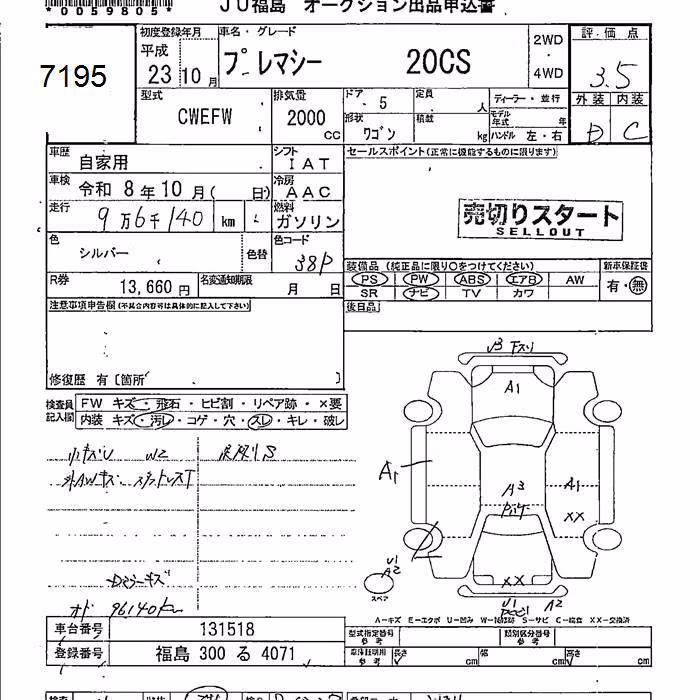 *0059805*
JU福島 オークション出品申込書
7195
初度登録年月
平成
23 10 月
車名・グレード
プレマシー 20CS
2WD
・
4WD
評価点
3.5
外装 内装
D C
型式
CWEFW
排気量
2000
cc
ドア 5
定員 人
ディーラー・並行
形状
ワゴン
積載 kg
モデル年式 年
ハンドル 左・右
車歴
自家用
シフト
IAT
セールスポイント(正常に機能するものに限ります)
車検
令和 8年10月( 日)
冷房
AAC
走行
9万6千140 km
燃料
ガソリン
売切りスタート
SELLOUT
色
シルバー
色替
色コード
38P
R券
13,660 円
名変通知期限
月 日
装備品 (純正品に限り○をつけてください)
PS PW ABS エアB AW
SR ナビ TV カワ
新車保証書
有・無
後日品
注意事項申告欄(不具合内容等は具体的に記入して下さい)
修復歴 有〔箇所 〕
検査員
記入欄
FW キズ・飛石・ヒビ割・リペア跡・×要
内装 キズ・汚レ・コゲ・穴・スレ・キレ・破レ
小キズU W2
外AWキズ
オド 96140km
A1
A1
A1
XX
XX
U1
A2
A2
スペア
A-キズ E-エクボ U-凹み W-補修跡 S-サビ C-腐食 XX-交換済
車台番号
131518
登録番号
福島 300 る 4071
型式指定番号
参考
類別区分番号
参考
車庫証明用
参考
長さ cm
幅 cm
高さ cm